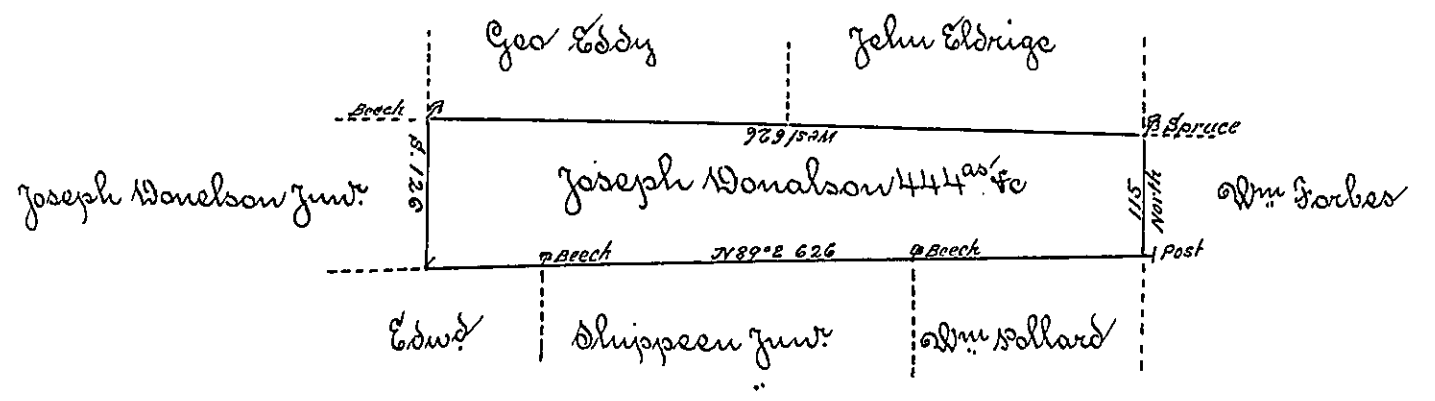 Geo Eddy John Eldrige
Beech
Spruce
West 626
S. 126
Joseph Donelson Junr.
Joseph Donalson 444 as. &c
North
115
Wm Forbes
Beech N 89° E 626 Beech
Post
Edwd Shippeen Junr. Wm Pollard